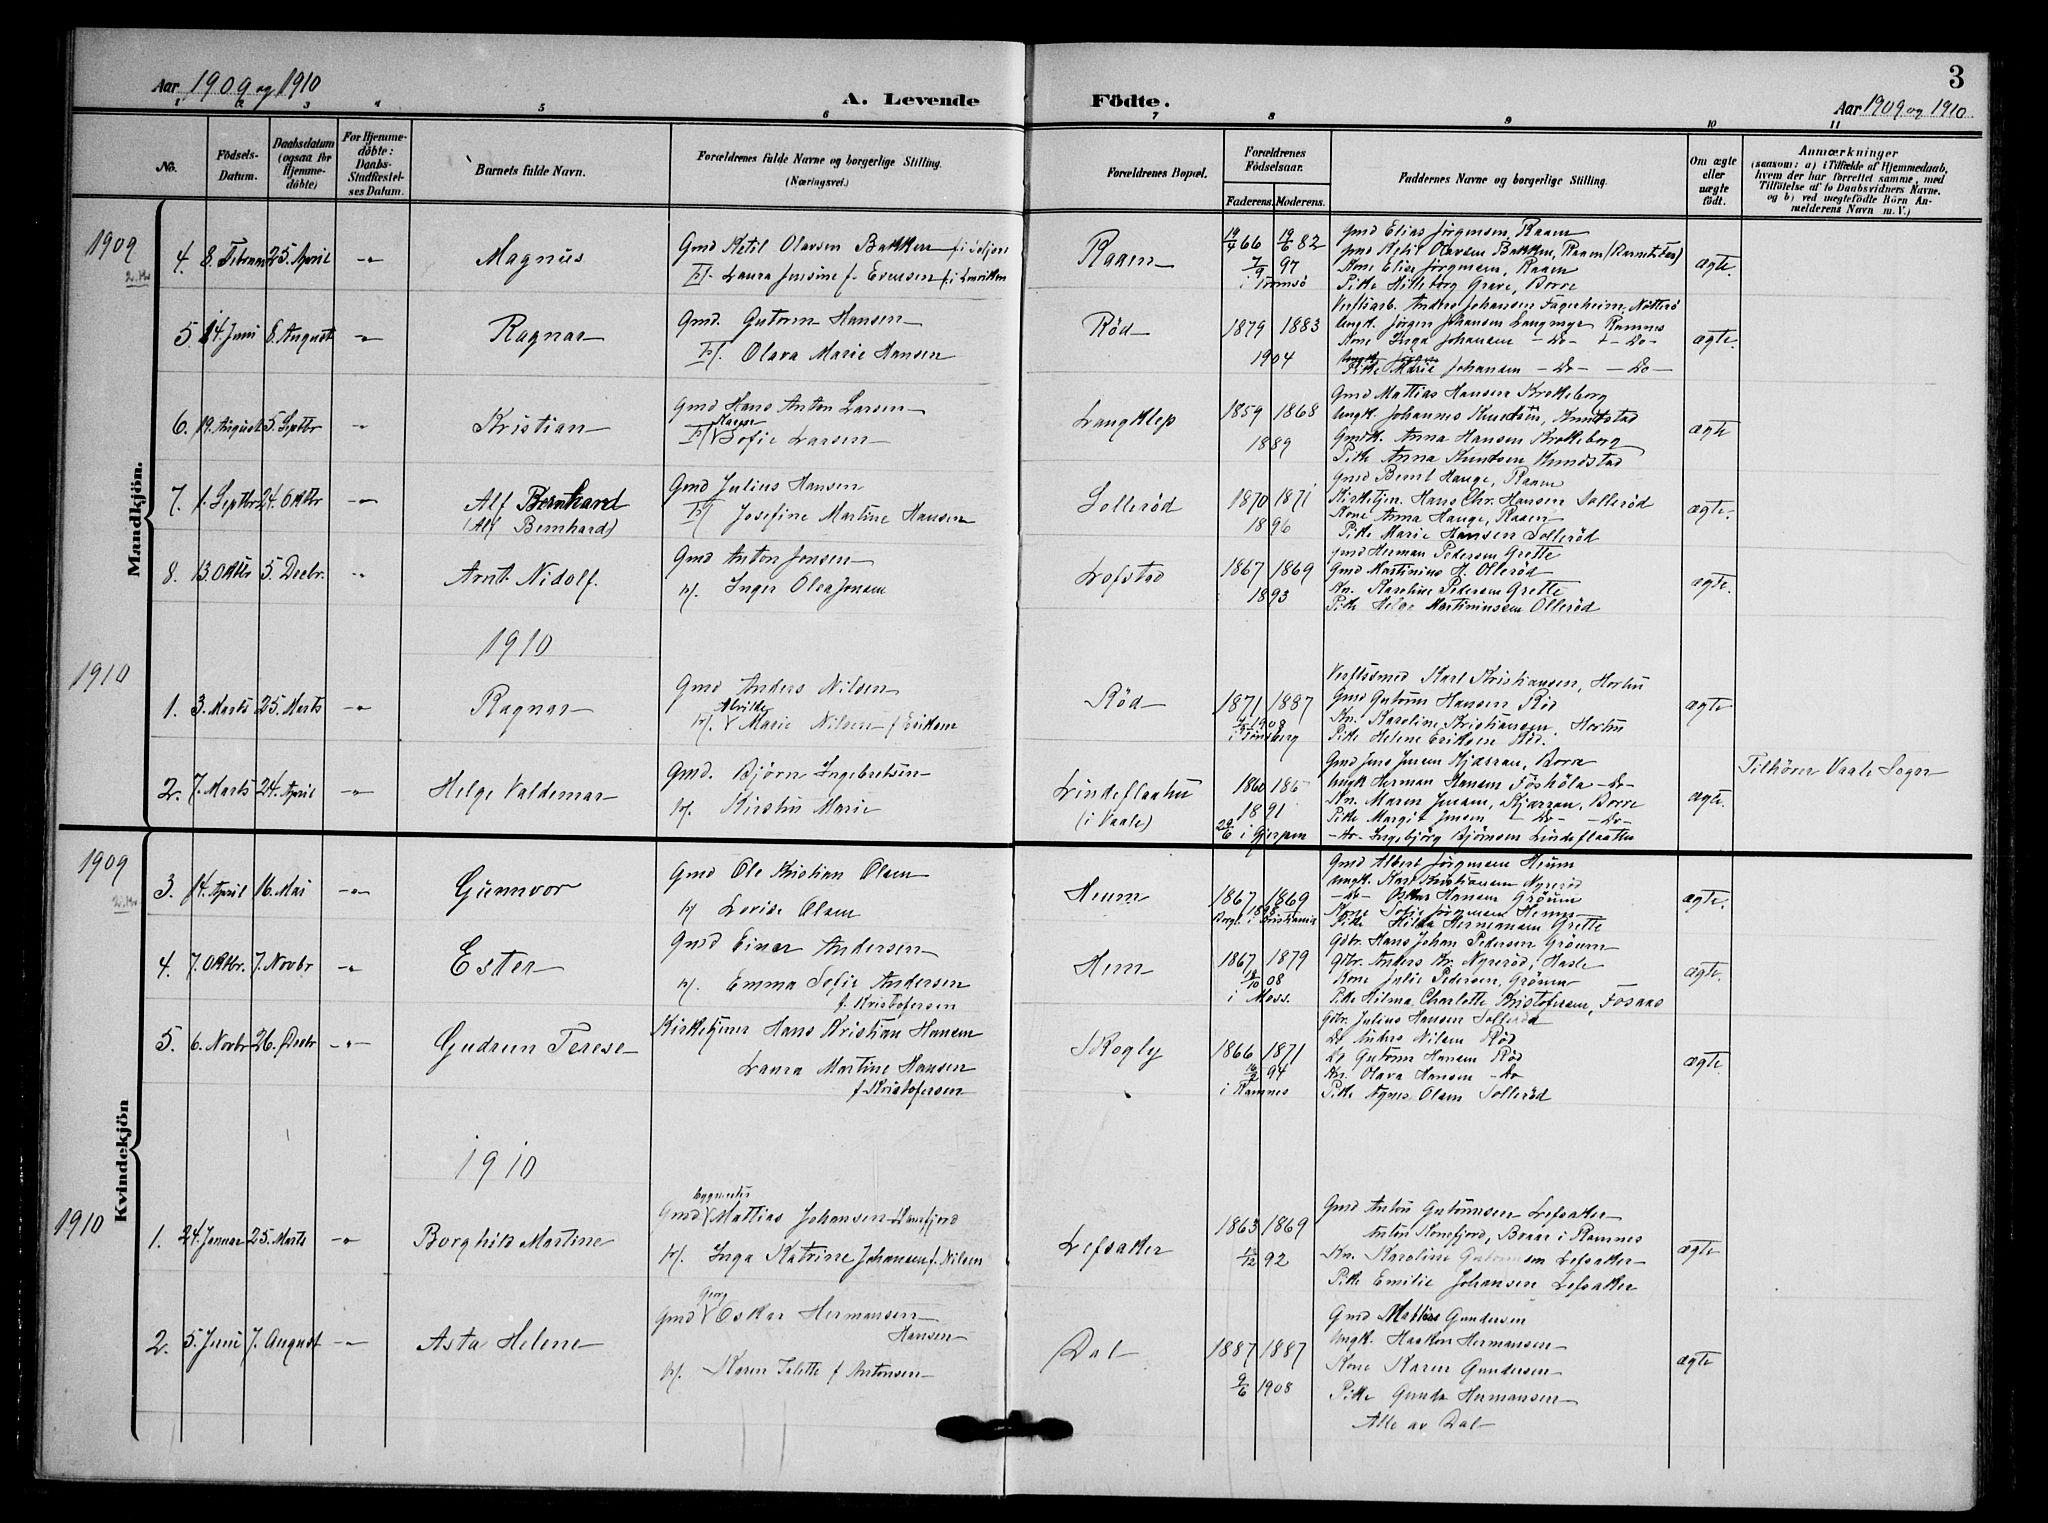 Aar 1909 og 1910
A. Levende
Födte.
3
Aar 1909 og 1910
1 2 3 4 5 6 7 8 9 10 11
No.
Födsels-Datum.
Daabsdatum (ogsaa for Hjemme-döbte)
For Hjemme-döbte: Daabs-Stadfæstel-ses Datum.
Barnets fulde Navn.
Forældrenes fulde Navne og borgerlige Stilling.
(Næringsvei.)
Forældrenes Bopæl.
Forældrenes Födselsaar.
Faderens.
Moderens.
Faddernes Navne og borgerlige Stilling.
Om ægte eller uægte födt.
Anmærkninger
(saasom: a) i Tilfælde af Hjemmedaab,
hvem der har forrettet samme, med
Tilföielse af to Daabsvidners Navne.
og b) ved uægtefödte Börn An-
melderens Navn m. V.)
Mandkjön.
1909
4. 8. Februar 25. April -"- Magnus
Gmd Ketil Olavsen Bakken f. i Seljord
H. Laura Jensine f. Evensen f. i Laurvikken
Raaen
19/4 66 19/6 82
7/9 97
i Tromsö
Gmd Elias Jørgensen, Raaen
Gmd Ketil Olavsen Bakken, Raaen (Barnets Far)
Kone Elise Jørgensen, Raaen
Pike Hilleborg Grave, Borre
ægte.
5. 14. Juni 8. August -"- Ragnar
Gmd. Gutorm Hansen
H. Olava Marie Hansen
Rød
1879 1883
1904
Verftsarb. Anders Johansen Fagerheim, Nötterö
Ungk. Jørgen Johansen Langmyr Ramnes
Kone Inga Johansen - Do - - Do -
Pike Marie Johansen - Do - - Do -
ægte.
6. 19. August 5. Septbr -"- Kristian
Gmd Hans Anton Larsen
Karen
H. V Sofie Larsen
Langklep
1859 1868
1889
Gmd Mattias Hansen Krokeborg
Ungk. Johannes Knudsen, Knudstad
Gmdk. Anna Hansen Krokeborg
Pike Anna Knudsen Knudstad
ægte
7. 1. Septbr 24. Oktbr -"- Alf Bernhard
(Alf Bernhard)
Gmd Julius Hansen
H. Josefine Martine Hansen
Sollerød
1870 1871
1896
Gmd Bernt Hauge, Raaen
Kirketjen. Hans Chr. Hansen Sollerød
Kone Anna Hauge, Raaen
Pike Marie Hansen Sollerød
ægte.
8. 13. Oktbr 5. Decbr. -"- Arnt Nidolf.
Gmd Anton Jensen
H. Inger Olea Jensen
Lofstad
1867 1869
1893
Gmd Herman Pedersen Grette
Gmd Martinius H. Ollerød
Kn. Karoline Pedersen Grette
Pike Helga Martiniussen Ollerød
ægte.
1910
1910
1. 3. Marts 25. Marts -"- Ragnar
Gmd Anders Nilsen
Alvilde
H. V Marie Nilsen f. Eriksen
Rød
1871 1887
1908
i Tønsberg
Verftssmed Karl Kristiansen, Horten
Gmd Gutorm Hansen Rød
Kn. Karoline Kristiansen, Horten
Pike Helene Eriksen Rød.
ægte
2. 7. Marts 24. April -"- Helge Valdemar
Gmd. Bjørn Ingebretsen
H. Kirstin Marie
Lindeflaaten
(i Vaale)
1860 186
1891
29/6 i Gjerpen
Gmd Jens Jensen Kjærran, Borre
Ungk Herman Hansen Foshöla - Do -
Kn. Maren Jensen, Kjærran, Borre
Pike Margit Jensen - Do - - Do -
- Do - Ingebjörg Bjørnsen Lindeflaaten
ægte.
Tilhører Vaale Sogn
Kvindekjön
1909
3. 14. April 16. Mai -"- Gunnvor
Gmd Ole Kristian Olsen
H. Lovise Olsen
Heum
1867 1869
Borgl. i Kristiania
Gmd Albert Jörgensen Heum
Ungk. Karl Kristiansen Nyrerød
- Do - Oskar Hansen Gröum
Kone Sofie Jørgensen Heum
Pike Hilda Hermansen Grette
ægte.
4. 7. Oktbr. 7. Novbr -"- Ester
Gmd Einar Andersen
H. Emma Sofie Andersen
f. Kristofersen
Hem
1867 1879
18/10 08
i Moss.
Gbr. Hans Johan Pedersen Gröum
Gbr. Anders Kr. Nyrerød, Hasle
Kone Julie Pedersen, Gröum
Pike Hilma Charlotte Kristofersen, Fosaas
ægte.
5. 6. Novbr 26. Decbr -"- Gudrun Terese
Kirketjener Hans Kristian Hansen
Laura Martine Hansen
f. Kristofersen
Skogly
1866 1871
94
i Ramnes
Gbr. Julius Hansen Sollerød
Do Anders Nilsen Rød
Do Gutorm Hansen Rød
Kn. Olava Hansen - Do
Pike Agnes Olsen Sollerød
ægte.
1910
1910
1. 24. Januar 25. Marts -"- Borghild Martine
Bygmester
Gmd V Mattias Johansen Ramfjord
H. Inga Katrine Johansen f. Nilsen
Lefsaker
1863 1869
12 92
Gmd Anton Gutormsen Lefsaker
Anton Ramfjord, Braar i Ramnes
Kn. Karoline Gutormsen Lefsaker
Pike Emilie Johansen Lefsaker
ægte
2. 5. Juni 7. August -"- Asta Helene
Georg
Gmd V Oskar Hermansen
Hansen
H. Karen Jolette f. Antonsen
Dal
1887 1887
9/6 1908
Gmd Mathias Gundersen
Ungk. Haakon Hermansen
Kone Karen Gundersen
Pike Gunda Hermansen
Alle av Dal
ægte